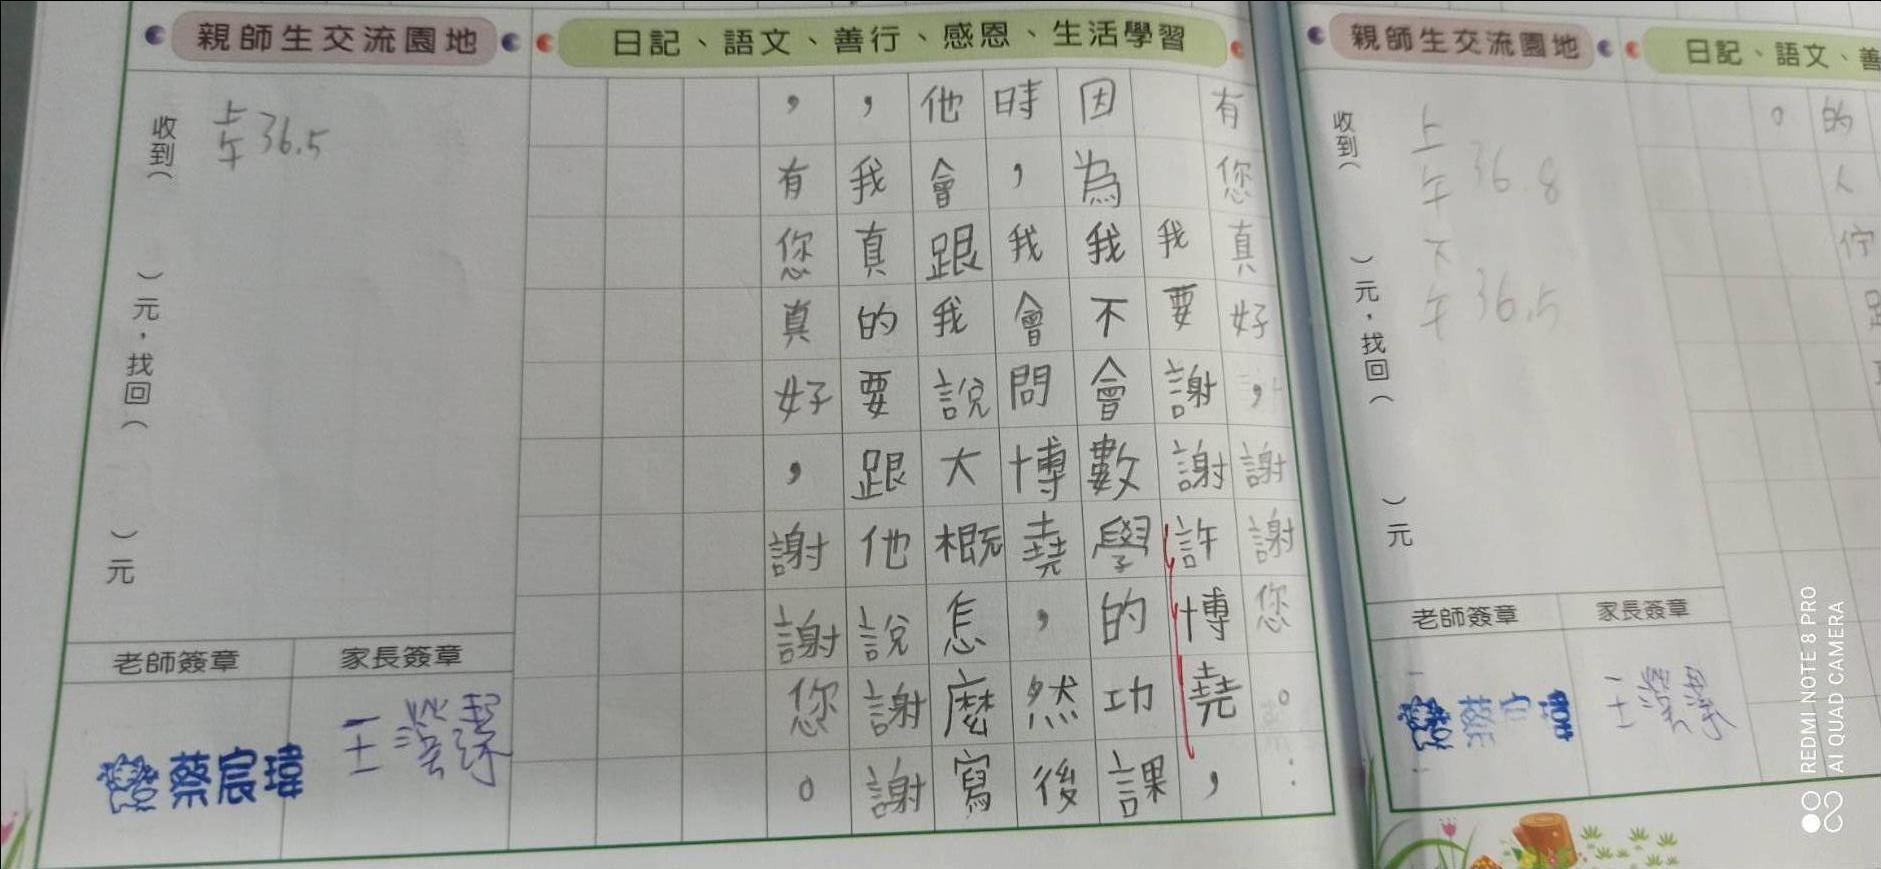 親師生交流園地
收到( )元,找回( )元
上午36.5
老師簽章
家長簽章
蔡宸瑋
日記、語文、善行、感恩、生活學習
有您真好,謝謝您。:
我要謝謝許博堯,
因為我不會數學的功課
時,我會問博堯,然後
他會跟我說大概怎麼寫
,我真的要跟他說謝謝
,有您真好,謝謝您。
親師生交流園地
收到( )元,找回( )元
上午36.8
下午36.5
老師簽章
家長簽章
日記、語文、善
的人
。
REDMI NOTE 8 PRO
AI QUAD CAMERA